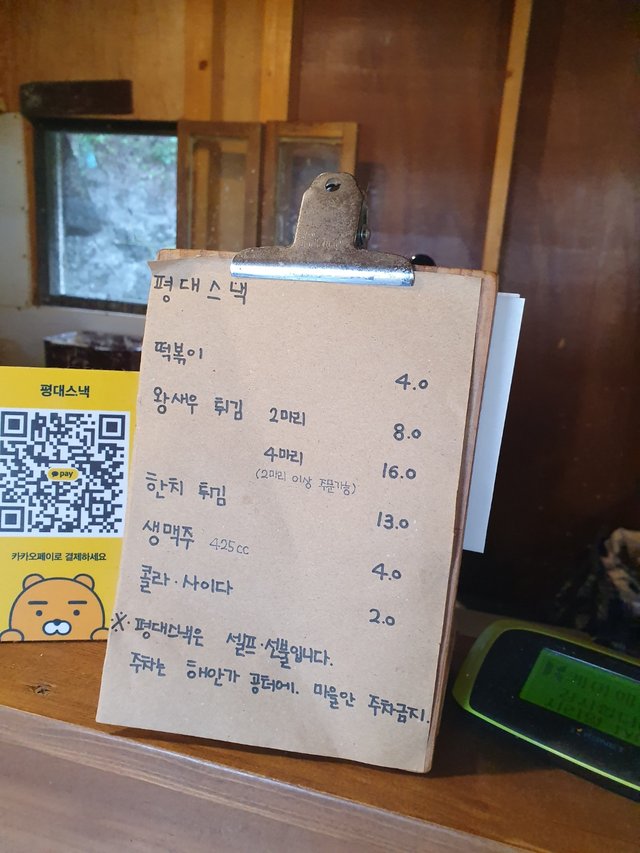 평대스낵
떡볶이 4.0
왕새우 튀김 2마리 8.0
4마리 16.0
(2마리 이상 주문가능)
한치 튀김 13.0
생맥주 425cc 4.0
콜라·사이다 2.0
※ 평대스낵은 셀프·선불입니다.
주차는 해안가 공터에. 마을안 주차금지.
평대스낵
pay
카카오페이로 결제하세요